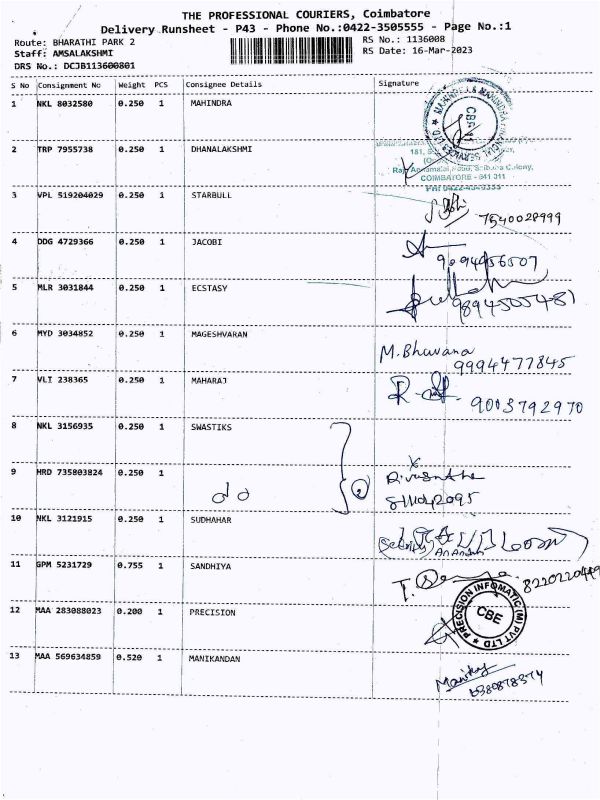 THE PROFESSIONAL COURIERS, Coimbatore
Delivery Runsheet - P43 - Phone No.:0422-3505555 - Page No.:1
Route: BHARATHI PARK 2 RS No.: 1136008
Staff: AMSALAKSHMI RS Date: 16-Mar-2023
DRS No.: DCJB113600801
S No Consignment No Weight PCS Consignee Details Signature
1 NKL 8032580 0.250 1 MAHINDRA
CBE
2 TRP 7955738 0.250 1 DHANALAKSHMI
COIMBATORE - 641 011
3 VPL 519204029 0.250 1 STARBULL
7540028999
4 DDG 4729366 0.250 1 JACOBI
9094956507
5 MLR 3031844 0.250 1 ECSTASY
9894505481
6 MYD 3034852 0.250 1 MAGESHVARAN
M. Bhuvana
9994477845
7 VLI 238365 0.250 1 MAHARAJ
9003792970
8 NKL 3156935 0.250 1 SWASTIKS
2
9 HRD 735803824 0.250 1
do
10 NKL 3121915 0.250 1 SUDHAHAR
11 GPM 5231729 0.755 1 SANDHIYA
12 MAA 283088023 0.200 1 PRECISION
PRECISION INFOMATIC (M) PVT LTD
CBE
13 MAA 569634859 0.520 1 MANIKANDAN